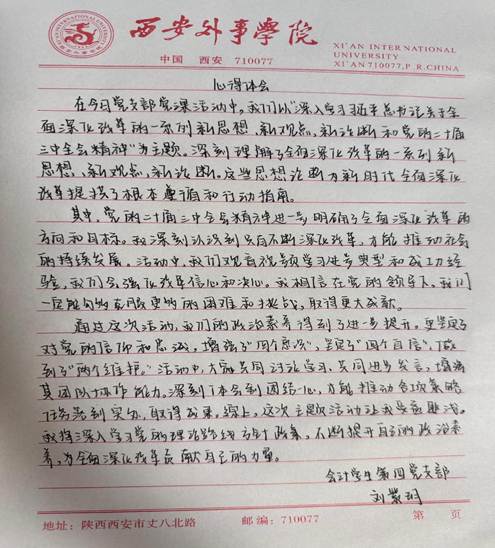 西安外事學院
中国 西安 710077
XI'AN INTERNATIONAL
UNIVERSITY
XI'AN 710077, P.R.CHINA
心得体会
在今日党支部党课活动中,我们以"深入学习习近平总书记关于全
面深化改革的一系列新思想、新观点、新论断和党的二十届
三中全会精神"为主题。深刻理解了全面深化改革的一系列新
思想、新观点、新论断。这些思想论断为新时代全面深化
改革提供了根本遵循和行动指南。
其中,党的二十届三中全会精神进一步明确了全面深化改革的
方向和目标。我深刻认识到只有不断深化改革,才能推动社会
的持续发展。活动中,我们观看视频学习先进典型和成功经
验,我们会强化改革信心和决心。我相信在党的领导下,我们
一定能够克服更多的困难和挑战,取得更大成就。
通过这次活动,我们的政治素养得到了进一步提升。更坚定了
对党的信仰和忠诚,增强了"四个意识",坚定"四个自信",做
到了"两个维护"。活动中,大家共同讨论学习、共同进步发言,增强
其团队协作能力。深刻了体会到团结一心,才能推动各项策略
任务落到实处,取得成果。综上,这次主题活动让我受益匪浅。
我将深入学习党的理论路线方针政策,不断提升自己的政治素
养,为全面深化改革贡献自己的力量。
会计学生第四党支部
刘紫玥
第 页
地址:陕西西安市丈八北路 邮编:710077